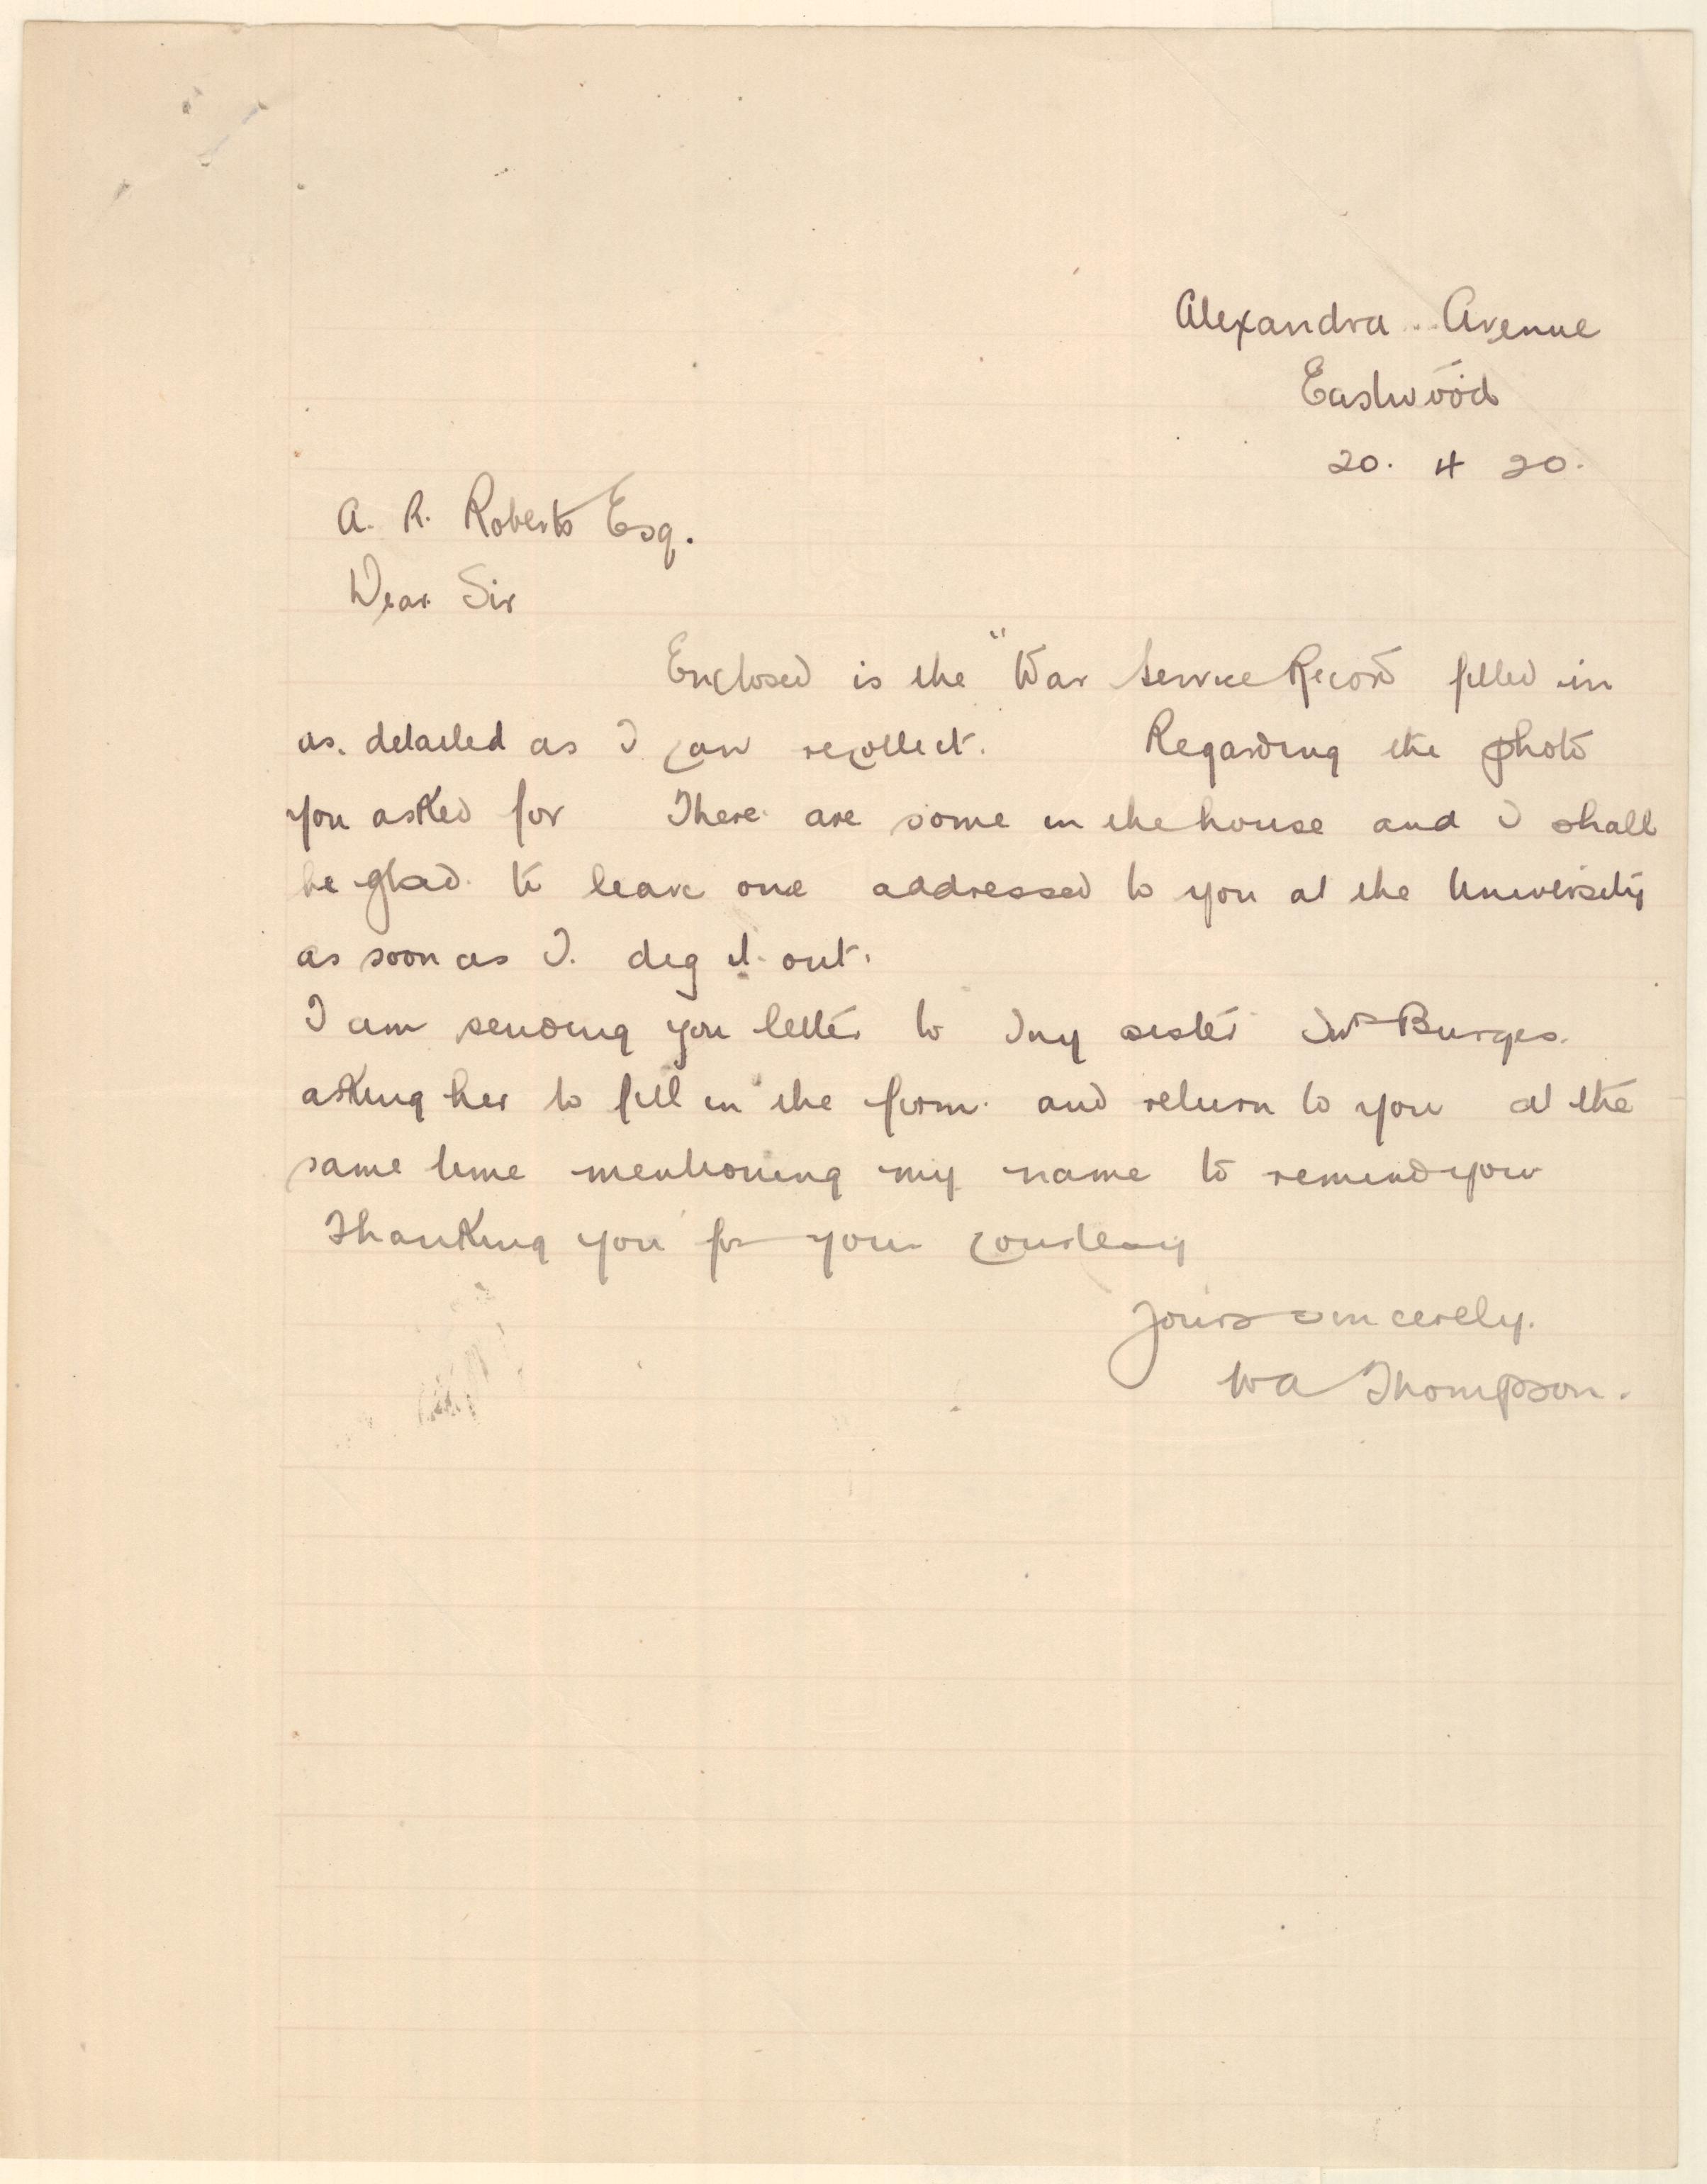 Alexandra Avenue
Eastwood
20. 4 20.
A. R. Roberts Esq.
Dear Sir
Enclosed is the "War Service Record filled in
as detailed as I can recollect. Regarding the photo
you asked for There are some in the house and I shall
be glad to leave one addressed to you at the University
as soon as I. dig it out.
I am sending you letter to my sister Mrs Burges.
asking her to fill in the form. and return to you at the
same time mentioning my name to remind you
Thanking you for your courtesy
Yours sincerely.
WA Thompson.